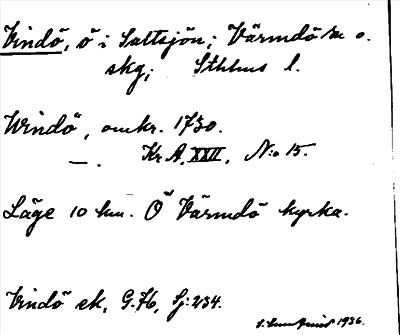 Vindö, ö i Saltsjön; Värmdö sn o.
skg; Sthlms l.
Windö, omkr. 1730.
— . Kr A. XXII, N:o 15.
Läge 10 km. Ö Värmdö kyrka.
Vindö ek, G.76, Sj: 234.
1936.